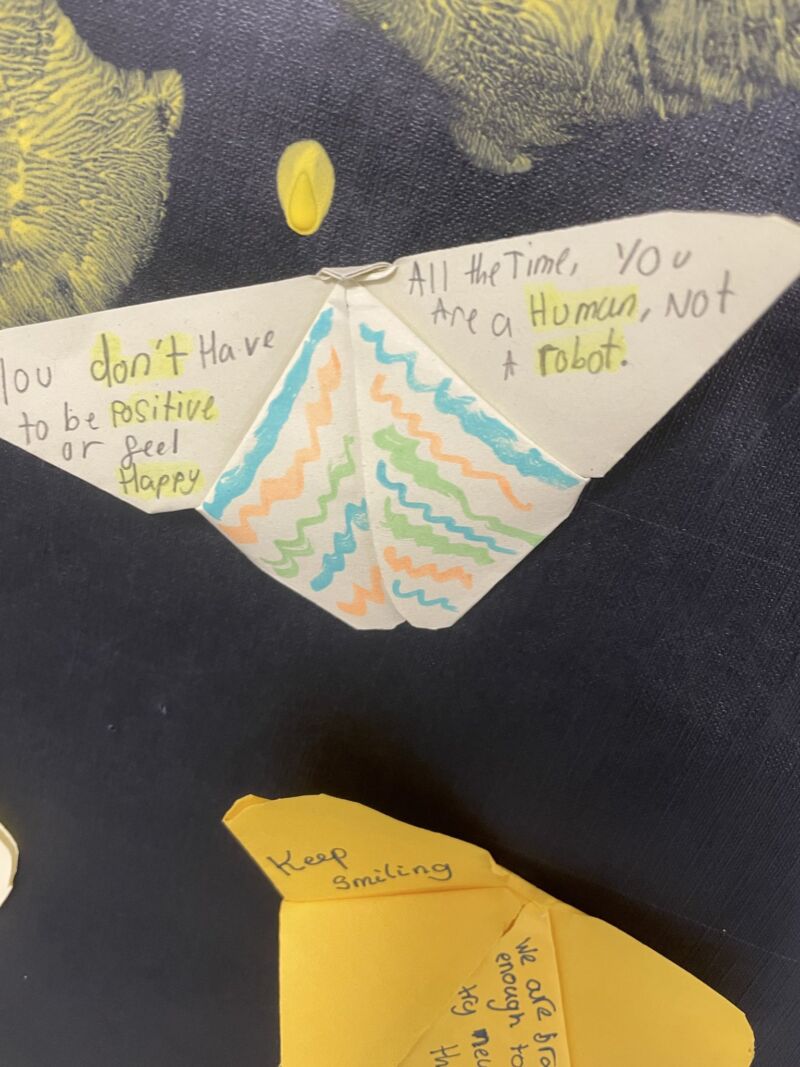 You don't Have
to be positive
or feel
Happy
All the Time, You
Are a Human, Not
A robot.
Keep
Smiling
We are
enough to
try